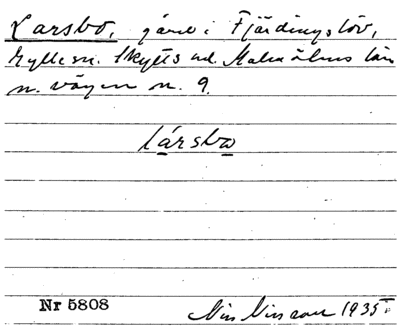 Larsbo, gård i Fjärdingslöv,
Gylle sn. Skytts hd. Malmöhus län
n. vägen n. 9.
lársbω
Nr 5808
Nils Nilsson 1935.